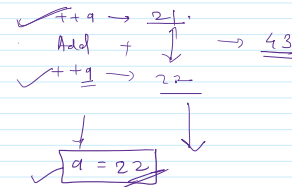 ++a → 21.
Add + → 43
++a → 22
a = 22